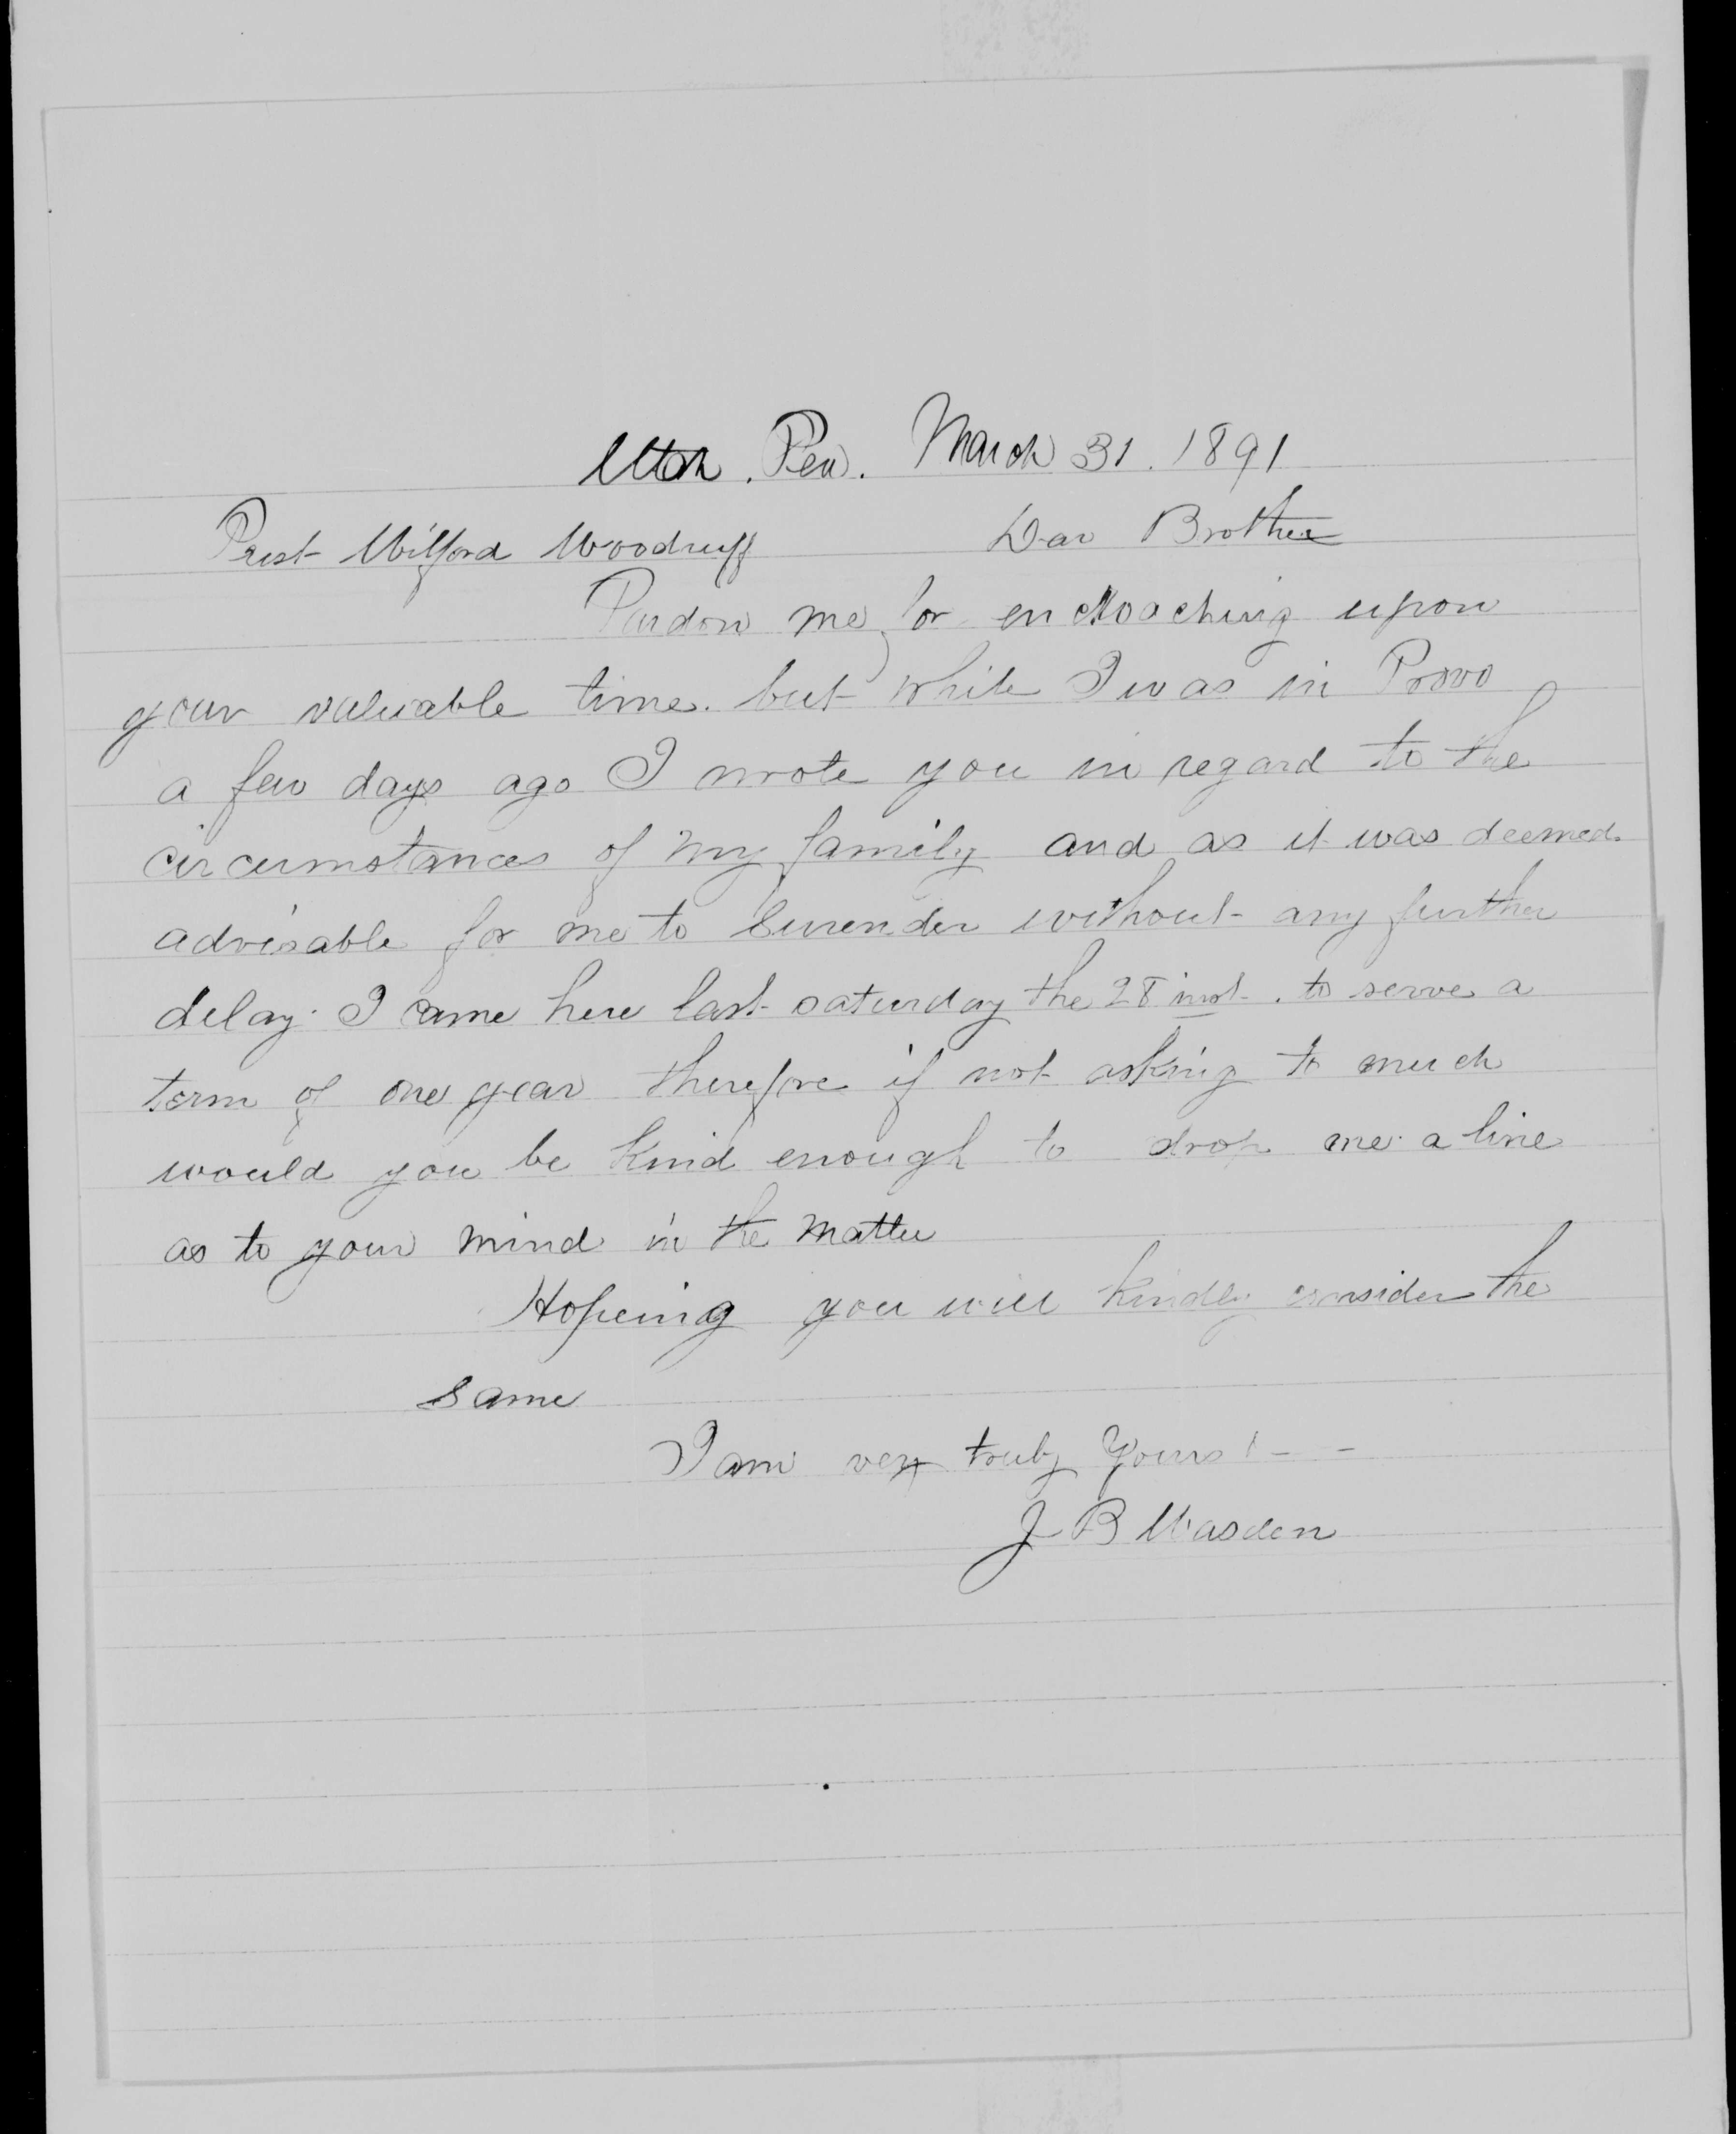 Utah. Pen. March 31. 1891
Prest Wilford Woodruff Dear Brother
Pardon me for encroaching upon
your valuable time. but while I was in Provo
a few days ago I wrote you in regard to the
circumstances of my family and as it was deemed
advisable for me to Surender without any further
delay. I came here last saturday the 28 inst. to serve a
term of one year therefore if not asking to much
would you be kind enough to drop me a line
as to your mind in the matter
Hopeing you will kindly consider the
same
I am very truly yours! - -
J B Wasden